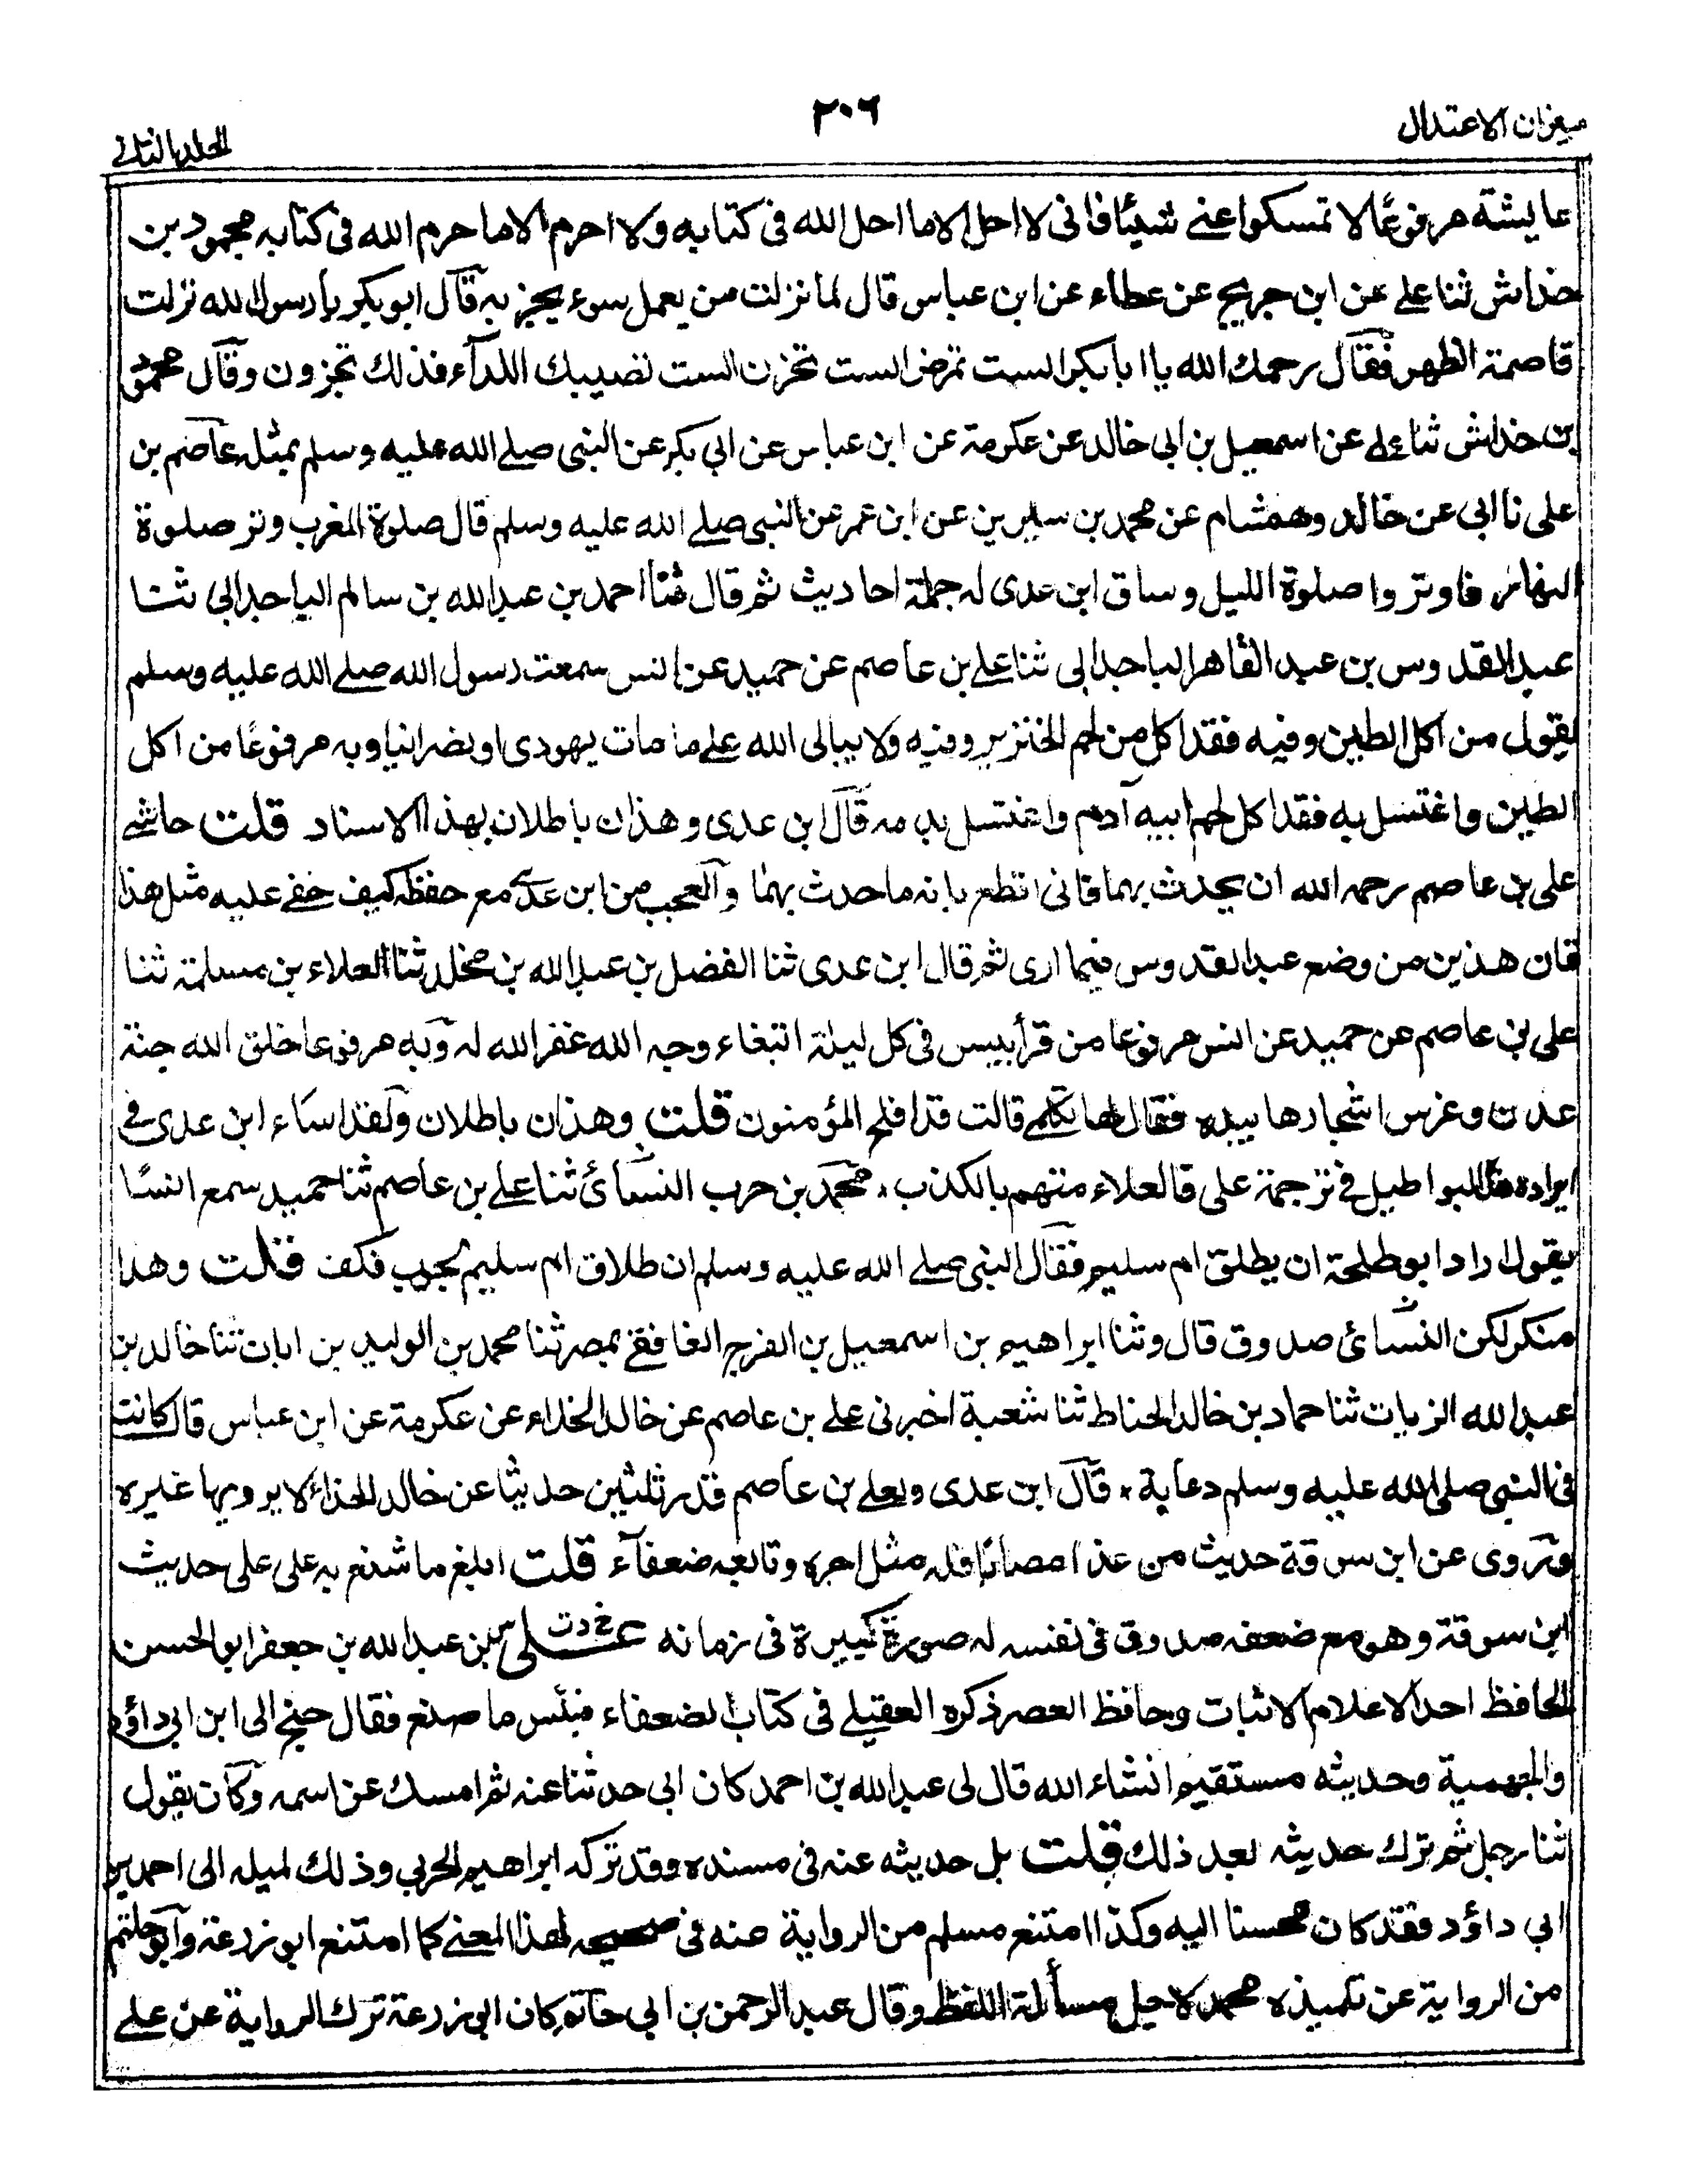 ميزان الاعتدال
٢٠٦
الجلد الثانى
عايشة مرفوعًا لا تمسكوا عنے شيئًا فانى لا احل الا ما احل الله فى كتابه ولا احرم الا ما حرم الله فى كتابه محمود بن
خداش ثنا علے عن ابن جريج عن عطاء عن ابن عباس قال لما نزلت من يعمل سوء يجز به قال ابو بكر يا رسول الله نزلت
قاصمة الظهر فقال رحمك الله يا ابا بكر الست تمرض الست تحزن الست تصيبك اللاٰواء فذلك تجزون وقال محمود
بن خداش ثنا علے عن اسمعيل بن ابى خالد عن عكرمة عن ابن عباس عن ابى بكر عن النبى صلے الله عليه وسلم بمثله عاصم بن
على نا ابى عن خالد وهشام عن محمد بن سيرين عن ابن عمر عن النبى صلے الله عليه وسلم قال صلوة المغرب وتر صلوة
النهار فاوتروا صلوة الليل وساق ابن عدى له جملة احاديث ثم قال ثنا احمد بن عبد الله بن سالم الباجدالى ثنا
عبد القدوس بن عبد القاهر الباجدالى ثنا علے بن عاصم عن حميد عن انس سمعت رسول الله صلے الله عليه وسلم
يقول من اكل الطين وفيه فقد اكل من لحم الخنزير وفيه ولا يبالى الله علے ما مات يهودى او نصرانيا وبه مرفوعًا من اكل
الطين واغتسل به فقد اكل لحم ابيه آدم واغتسل بدمه قال ابن عدى وهذان باطلان بهذا الاسناد قلت حاشے
على بن عاصم رحمه الله ان يحدث بهما فانى اقطع بانه ما حدث بهما والعجب من ابن عدے مع حفظه كيف خفے عليه مثل هذا
فان هذين من وضع عبد القدوس فيما ارى ثم قال ابن عدى ثنا الفضل بن عبد الله بن مخلد ثنا العلاء بن مسلمة ثنا
على بن عاصم عن حميد عن انس مرفوعا من قرأ يس فى كل ليلة ابتغاء وجه الله غفر الله له وبه مرفوعا خلق الله جنة
عدن وغرس اشجارها بيده فقال لها تكلمے قالت قد افلح المؤمنون قلت وهذان باطلان ولقد اساء ابن عدى فے
ايراده هذا البواطيل فے ترجمة على فالعلاء متهم بالكذب، محمد بن حرب النسائ ثنا علے بن عاصم ثنا حميد سمع انسًا
يقول اراد ابو طلحة ان يطلق ام سليم فقال النبى صلے الله عليه وسلم ان طلاق ام سليم لحوب فكف قلت وهذا
منكر لكن النسائ صدوق قال وثنا ابراهيم بن اسمعيل بن الفرج الغافقے بمصر ثنا محمد بن الوليد بن ابان ثنا خالد بن
عبد الله الزيات ثنا حماد بن خالد الحناط ثنا شعبة اخبرنى علے بن عاصم عن خالد الحذاء عن عكرمة عن ابن عباس قال كانت
فى النبى صلى الله عليه وسلم دعابة، قال ابن عدى ولعلے بن عاصم قدر ثلثين حديثا عن خالد الحذاء لا يرويها غيره
وتروى عن ابن سوقة حديث من عذا مصابًا فله مثل اجره وتابعه ضعفآء قلت ابلغ ما شنع به على على حديث
ابن سوقة وهو مع ضعفه صدوق فى نفسه له صورة كبيرة فى زمانه خ د ت س علے بن عبد الله بن جعفر ابو الحسن
الحافظ احد الاعلام الاثبات وحافظ العصر ذكره العقيلے فى كتاب الضعفاء فبئس ما صنع فقال جنح الى ابن ابى داؤد
والجهمية وحديثه مستقيم انشاء الله قال لى عبد الله بن احمد كان ابى حدثنا عنه ثم امسك عن اسمه وكان يقول
ثنا رجل ثم ترك حديثه بعد ذلك قلت بل حديثه عنه فى مسنده وقد تركه ابراهيم الحربى وذلك لميله الى احمد بن
ابى داؤد فقد كان محسنا اليه وكذا امتنع مسلم من الرواية عنه فى صحيحه لهذا المعنے كما امتنع ابو زرعة وابو حاتم
من الرواية عن تلميذه محمد لاجل مسألة اللفظ وقال عبد الرحمن بن ابى حاتم كان ابى زرعة ترك الرواية عن علے